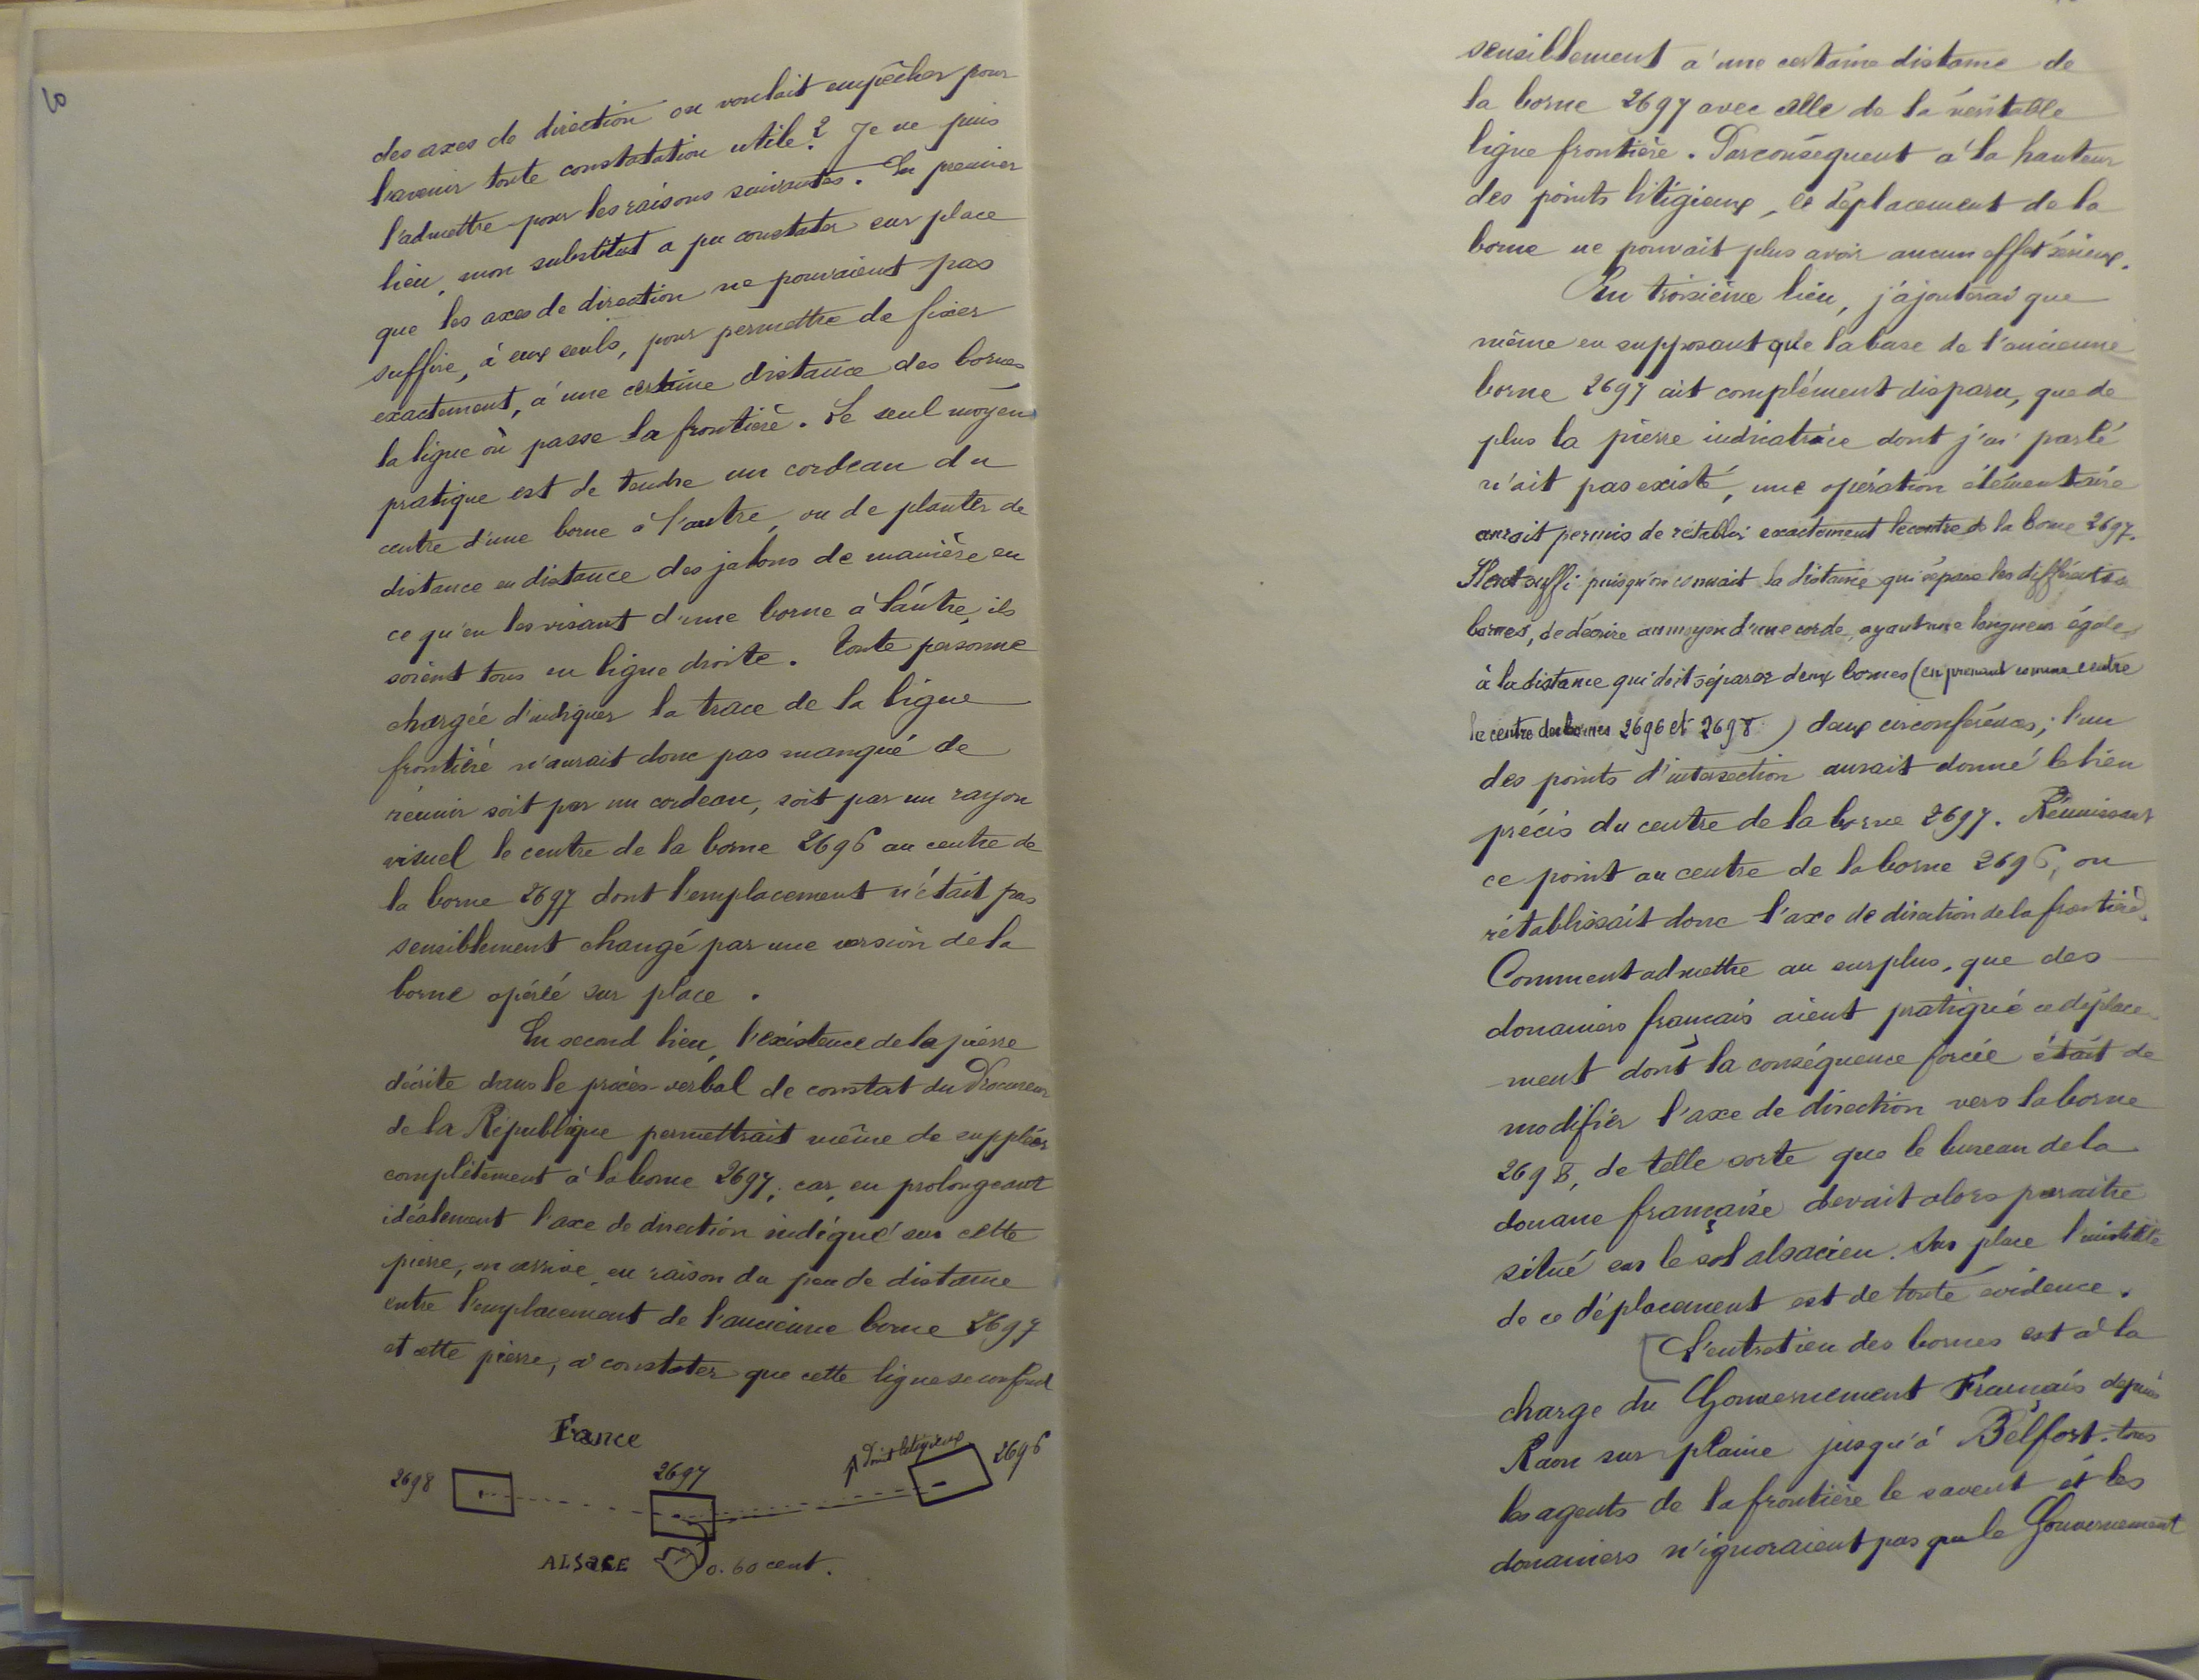 des axes de direction on voulait empêcher pour
l'avenir toute constatation utile? Je ne puis
l'admettre pour les raisons suivantes. En premier
lieu, mon substitut a pu constater sur place
que les axes de direction ne pouvaient pas
suffire, à eux seuls, pour permettre de fixer
exactement, à une certaine distance des bornes
la ligne où passe la frontière. Le seul moyen
pratique est de tendre un cordeau du
centre d'une borne à l'autre, ou de planter de
distance en distance des jalons de manière en
ce qu'en les visant d'une borne à l'autre, ils
soient tous en ligne droite. Toute personne
chargée d'indiquer la trace de la ligne
frontière n'aurait donc pas manqué de
réunir soit par un cordeau, soit par un rayon
visuel le centre de la borne 2696 au centre de
la borne 2697 dont l'emplacement n'était pas
sensiblement changé par une version de la
borne opérée sur place.
En second lieu, l'existence de la pierre
décrite dans le procès-verbal de constat du Procureur
de la République permettrait même de suppléer
complètement à la borne 2697, car, en prolongeant
idéalement l'axe de direction indiqué sur cette
pierre, on arrive, en raison du peu de distance
entre l'emplacement de l'ancienne borne 2697
et cette pierre, à constater que cette ligne se confond
France
2698
2697
Point litigieux
2696
ALSACE
0.60 cent.
sensiblement à une certaine distance de
la borne 2697 avec celle de la véritable
ligne frontière. Par conséquent à la hauteur
des points litigieux, le déplacement de la
borne ne pouvait plus avoir aucun effet sérieux.
En troisième lieu, j'ajouterai que
même en supposant que la base de l'ancienne
borne 2697 ait complément disparu, que de
plus la pierre indicatrice dont j'ai parlé
n'ait pas existé, une opération élémentaire
aurait permis de rétablir exactement le centre de la borne 2697.
Il eut suffi puisqu'on connait la distance qui sépare les différentes
bornes, de décrire au moyen d'une corde, ayant une longueur égale
à la distance qui doit séparer deux bornes (en prenant comme centre
le centre des bornes 2696 et 2698) deux circonférences; l'un
des points d'intersection aurait donné le lieu
précis du centre de la borne 2697. Réunissant
ce point au centre de la borne 2696, on
rétablissait donc l'axe de direction de la frontière.
Comment admettre au surplus, que des
douaniers français aient pratiqué ce déplace-
ment dont la conséquence forcée était de
modifier l'axe de direction vers la borne
2698, de telle sorte que le bureau de la
douane française devait alors paraitre
situé sur le sol alsacien. Sur place l'inutilité
de ce déplacement est de toute évidence.
L'entretien des bornes est à la
charge du Gouvernement Français depuis
Raon sur plaine jusqu'à Belfort. tous
les agents de la frontière le savent et les
douaniers n'ignoraient pas que le Gouvernement